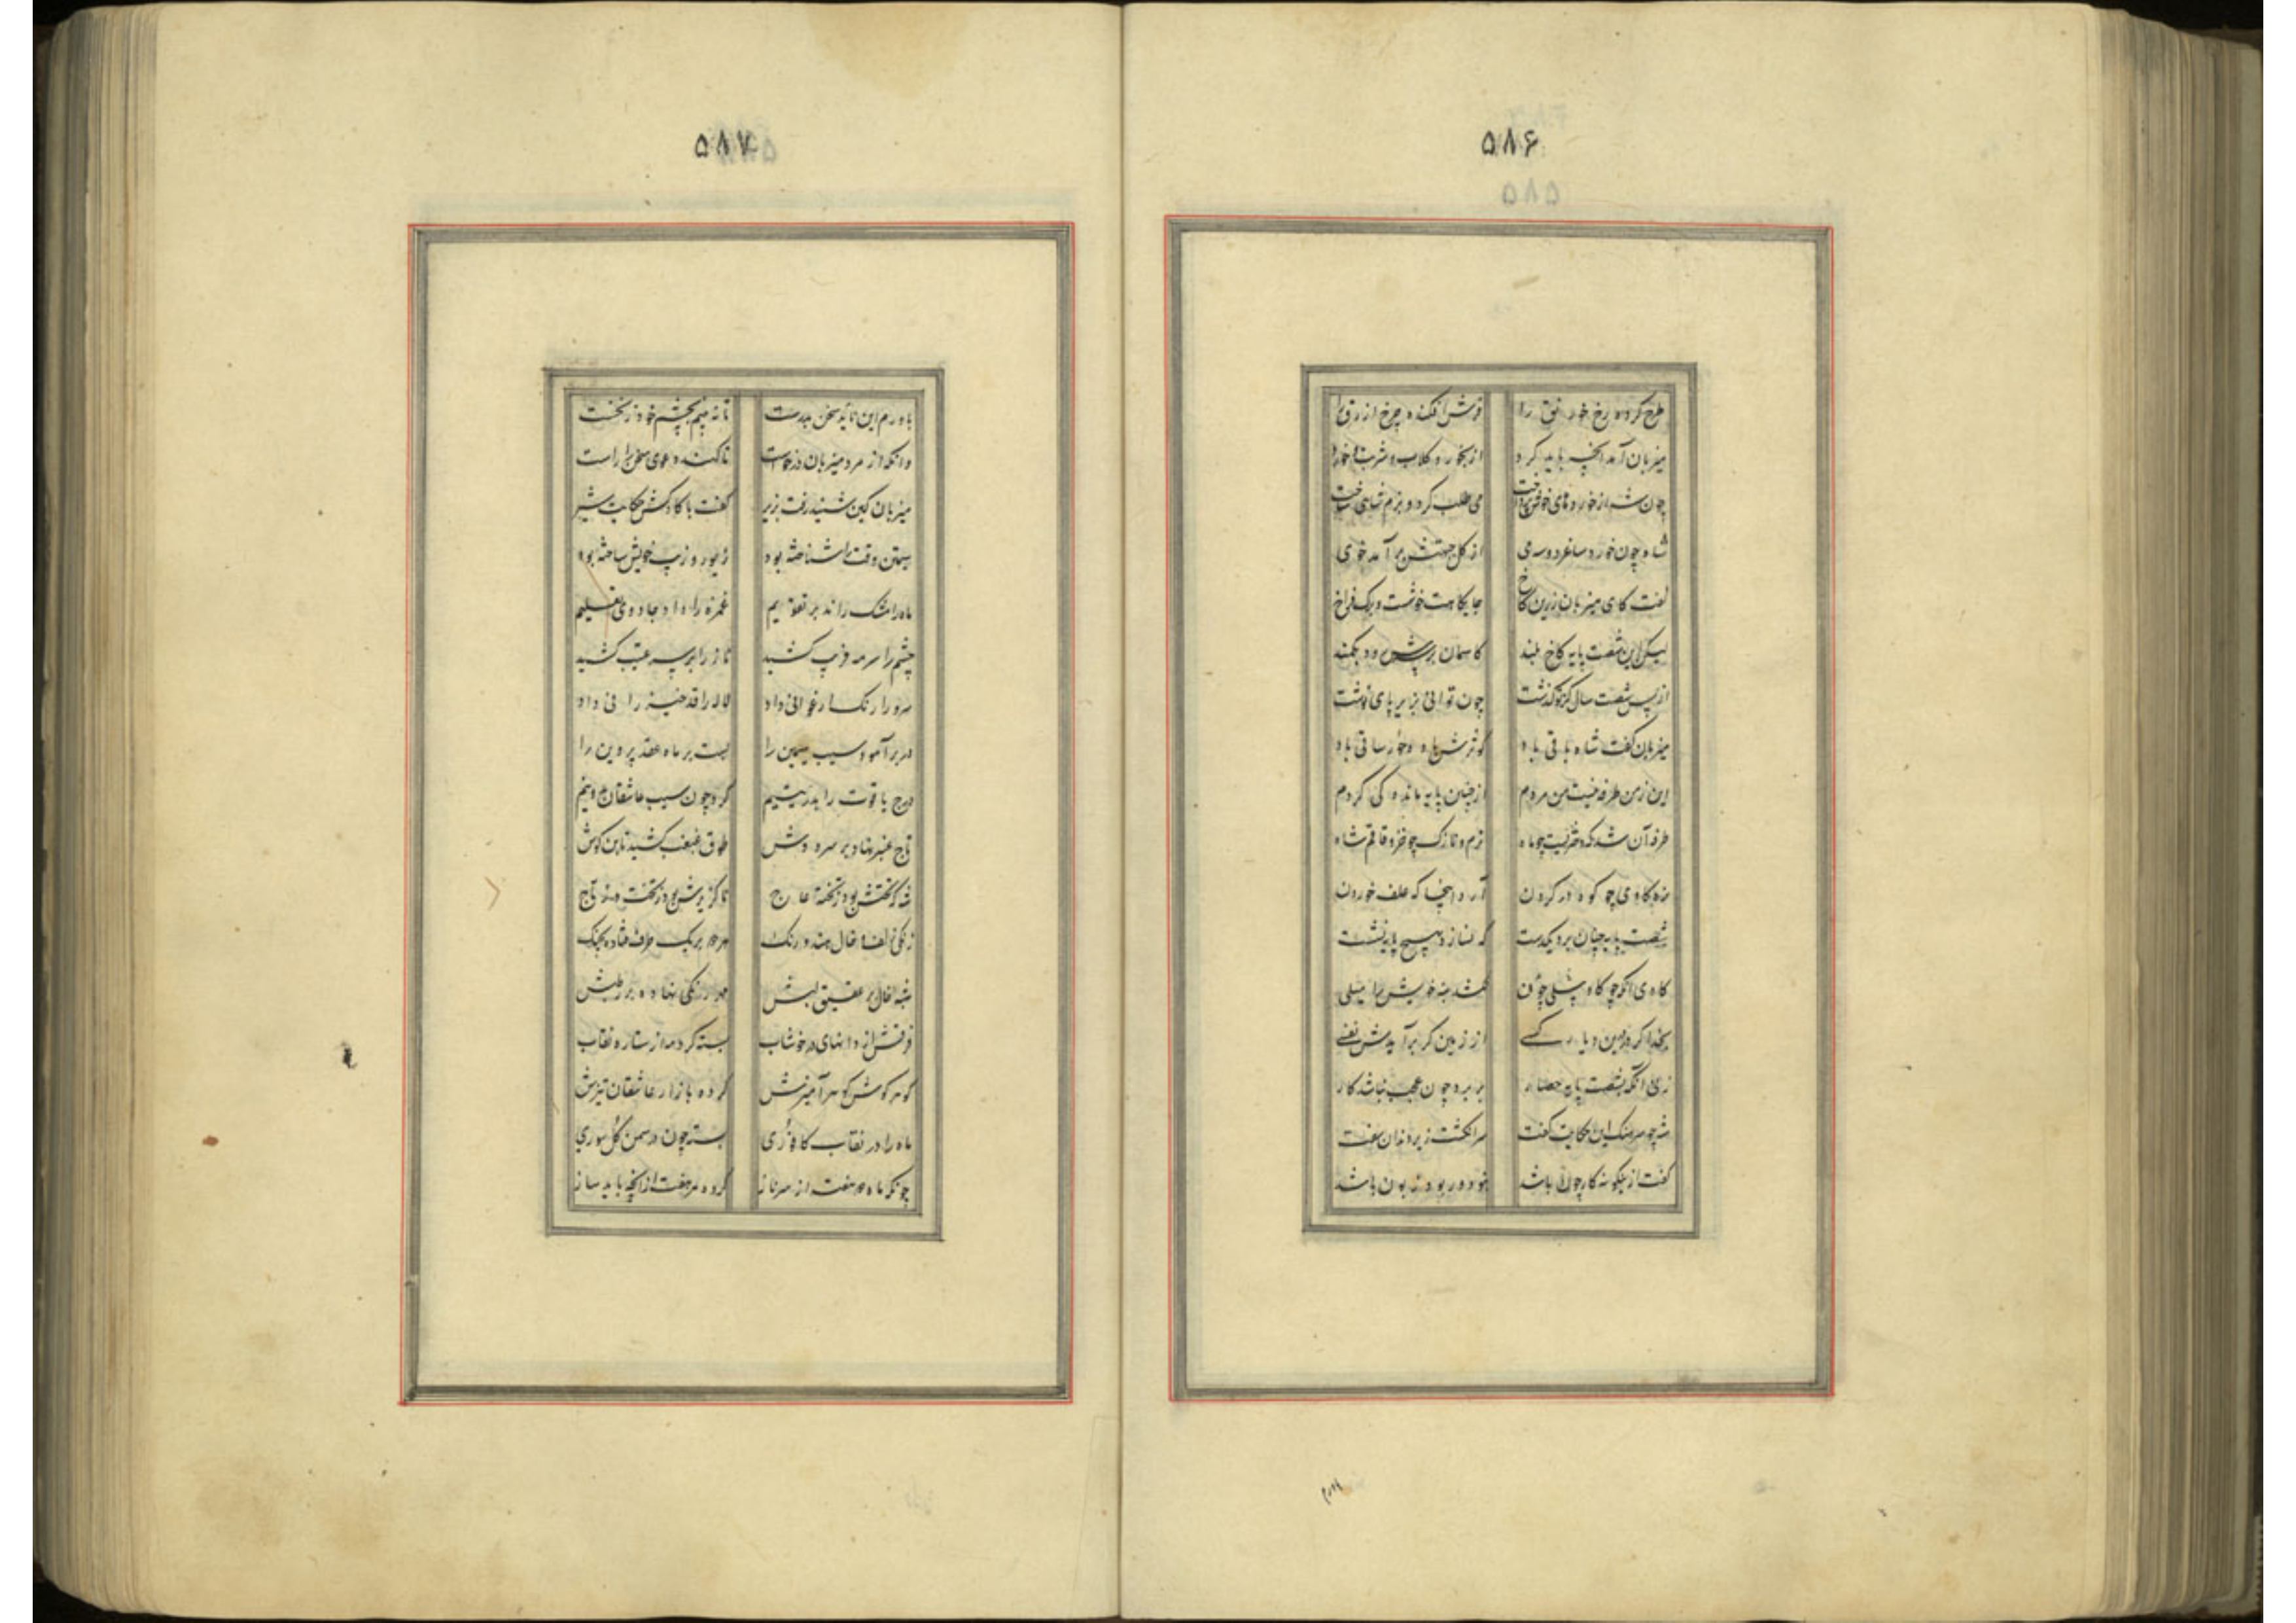 ۵۸۶
طرح کرده رخ خورنق را فرش افکنده چرخ ازرق را
میزبان آمد آنچه باید کرد از بخور و کلاب و شربت و خورد
چون شه از خوردهای خوش پرداخت می طلب کرد و بزم شاهی ساخت
شاه چون خورد ساغر دو سه می از کل جبهتش برآمد خوی
گفت کای میزبان زرین کاخ جایکاهت خوشست و برک فراخ
لیکن این شصت پایه کاخ بلند کاسمان بر سرش رود بکمند
از پس شصت سال کز تو گذشت چون توانی بزیر پای نوشت
میزبان گفت شاه باقی باد کوثرش باده و حور ساقی باد
این ز من طرفه نیست من مردم از چنین پایه مانده کی گردم
طرفه آن شد که دخترست چو ماه نرم و نازک چو خز و قاقم شاه
نره کاوی چو کوه در گردن آرد اینجا که علف خوردن
شصت پایه چنان برد یکدست که نسازد بهیچ پایه نشست
کاوی آنکه چو کاو پیلی چون نکشد پیه خویش را میلی
بخدا کر درین دیار کسی از زمین کر برآردش نفسی
زنی آنکه بشصت پایه حصار بر برد چون عجب نباشد کار
شه چو سرهنک این حکایت گفت سر انکشت زیر دندان سفت
گفت ازینکونه کار چون باشد نبود ور بود فسون باشد
۵۸۷
باورم این ناید سخن بدرست تا نه بینم بچشم خود ز نخست
وانکه از مرد میزبان درخواست تا کند دعوی سخن را راست
میزبان کین شنید رفت بزیر گفت با کاوکش حکایت شیر
سیمتن وقت را شناخته بود زیور و زیب خویش ساخته بود
ماه را مشک راند بر تقویم غمزه را داد جادوی تعلیم
چشم را سرمه فریب کشید ناز را بر سر عتیب کشید
سرو را رنک ارغوانی داد لاله را قد خیزرانی داد
در برآمود سیب سیمین را بست بر ماه عقد پروین را
درج یاقوت را بدر یتیم کرد چون سیب عاشقان بدو نیم
تاج عنبر نهاد بر سر دوش طوق غبغب کشید تا بن کوش
شه که تختش بود ز تخته عاج ناکزیرش بود ز تخت و ز تاج
زنکی زلف و خال هندو رنک هر دو بر یک طرف ستاده بجنک
شبه خال بر عقیق لبش مهر زنکی نهاده بر رطبش
فرقش از دانهای در خوشاب بسته کرد مه از ستاره نقاب
گوهر کوش کوهر آمیزش کرده بازار عاشقان تیزش
ماه را در نقاب کافوری بسته چون در سمن کل سوری
چونکه ماه دو هفت از سر ناز کرد هر هفت از آنچه باید ساز